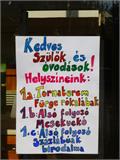 Kedves
Szülők és
óvodások!
Helyszíneink:
1.a Tornaterem
Fürge rókalábak
1.b: Alsó folyosó
Mesekuckó
1.c: Alsó folyosó
Százlábúak
birodalma